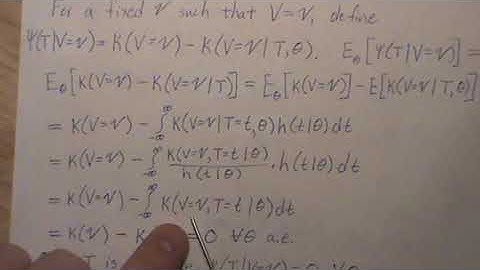 For a fixed v such that V=v, define
Ψ(T|V=v) = K(V=v) − K(V=v|T,θ). E_θ[Ψ(T|V=v)] =
E_θ[K(V=v) − K(V=v|T)] = E_θ[K(V=v)] − E[K(V=v|T,θ)]
= K(V=v) − ∫_{-∞}^{∞} K(V=v|T=t,θ) h(t|θ) dt
= K(V=v) − ∫_{-∞}^{∞} K(V=v,T=t|θ)/h(t|θ) · h(t|θ) dt
= K(V=v) − ∫_{-∞}^{∞} K(V=v,T=t|θ) dt
= K(v) − K = 0 ∀θ a.e.
T is Ψ(T|V=v) = 0